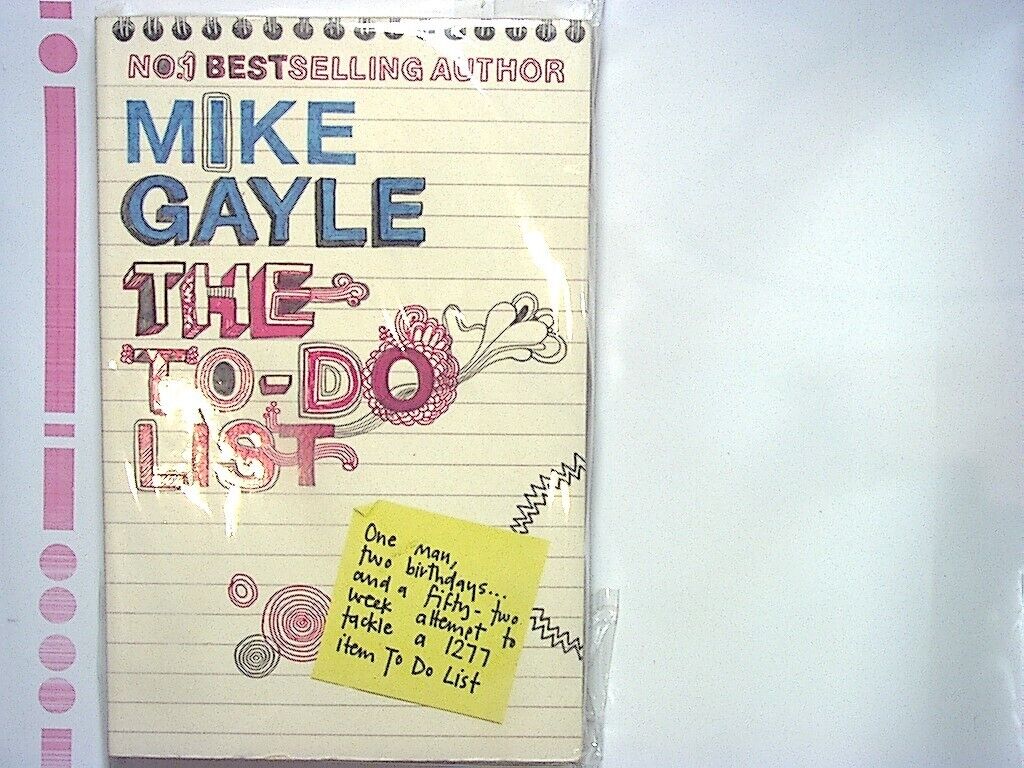 NO.1 BESTSELLING AUTHOR
MIKE
GAYLE
THE
TO-DO
LIST
One man,
two birthdays...
and a fifty-two
week attempt to
tackle a 1277
item To Do List